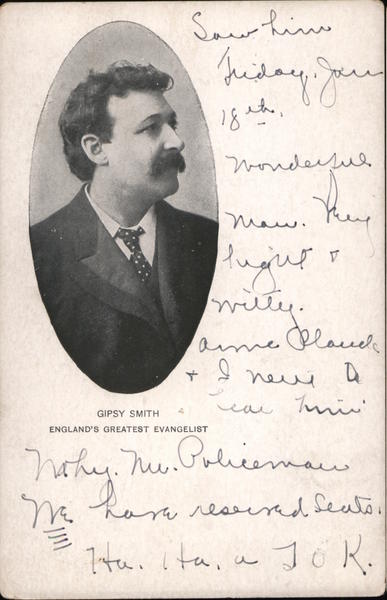 Saw him
Friday, Jan
18th.
Wonderful
man. Very
bright &
witty.
& I
hear him
GIPSY SMITH
ENGLAND'S GREATEST EVANGELIST
Why, Mr. Policeman
We have reserved seats.
Ha. Ha. a J O K.